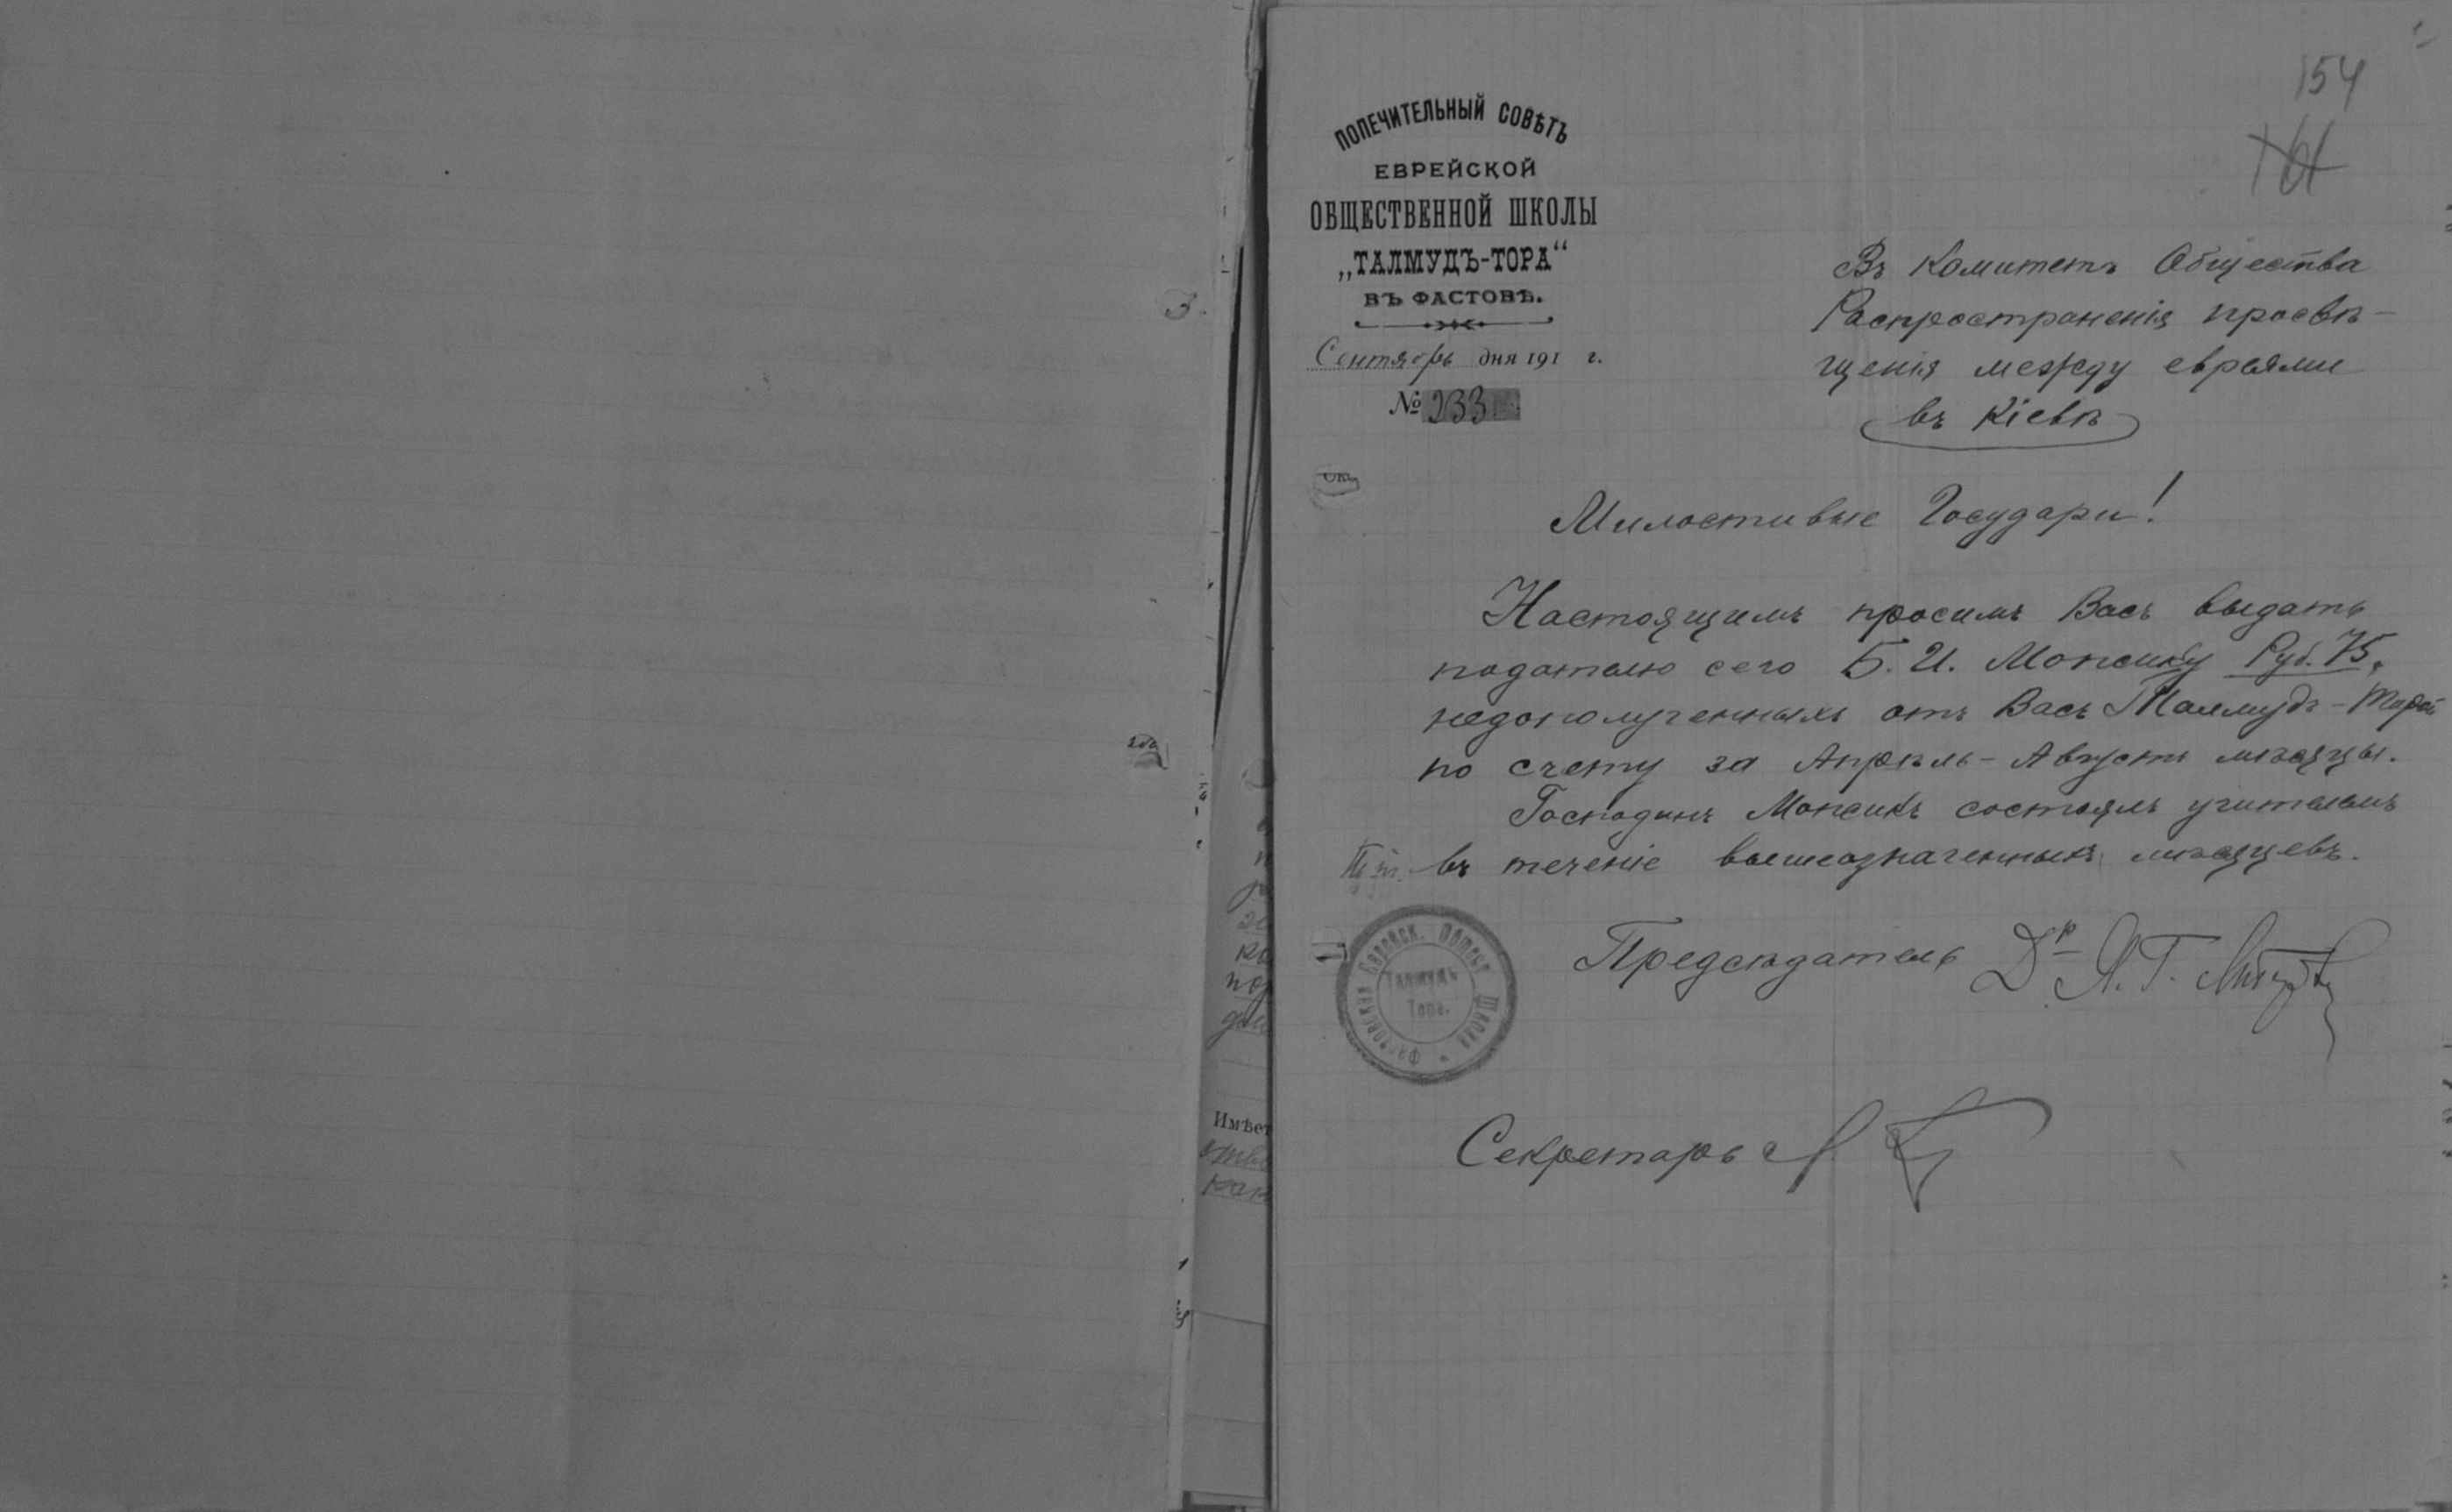 154
ПОПЕЧИТЕЛЬНЫЙ СОВѢТЪ
ЕВРЕЙСКОЙ
ОБЩЕСТВЕННОЙ ШКОЛЫ
„ТАЛМУДЪ-ТОРА“
ВЪ ФАСТОВѢ.
Сентябрь дня 191 г.
№ 233
Въ Комитетъ Общества
Распространенія просвѣ-
щенія между евреями
въ Кіевѣ
Милостивые Государи!
Настоящимъ просимъ Васъ выдать
подателю сего Б. И. Мопсику Руб. 75,
недополученныхъ отъ Васъ Талмудъ-Торой
по счету за Апрѣль-Августъ мѣсяцы.
Господинъ Мопсикъ состоялъ учителемъ
въ теченіе вышеозначенныхъ мѣсяцевъ.
Предсѣдатель Др. Я. Г.
Фастовская Еврейск. Общест. Школа
Талмудъ
Тора.
Секретарь
Имѣет